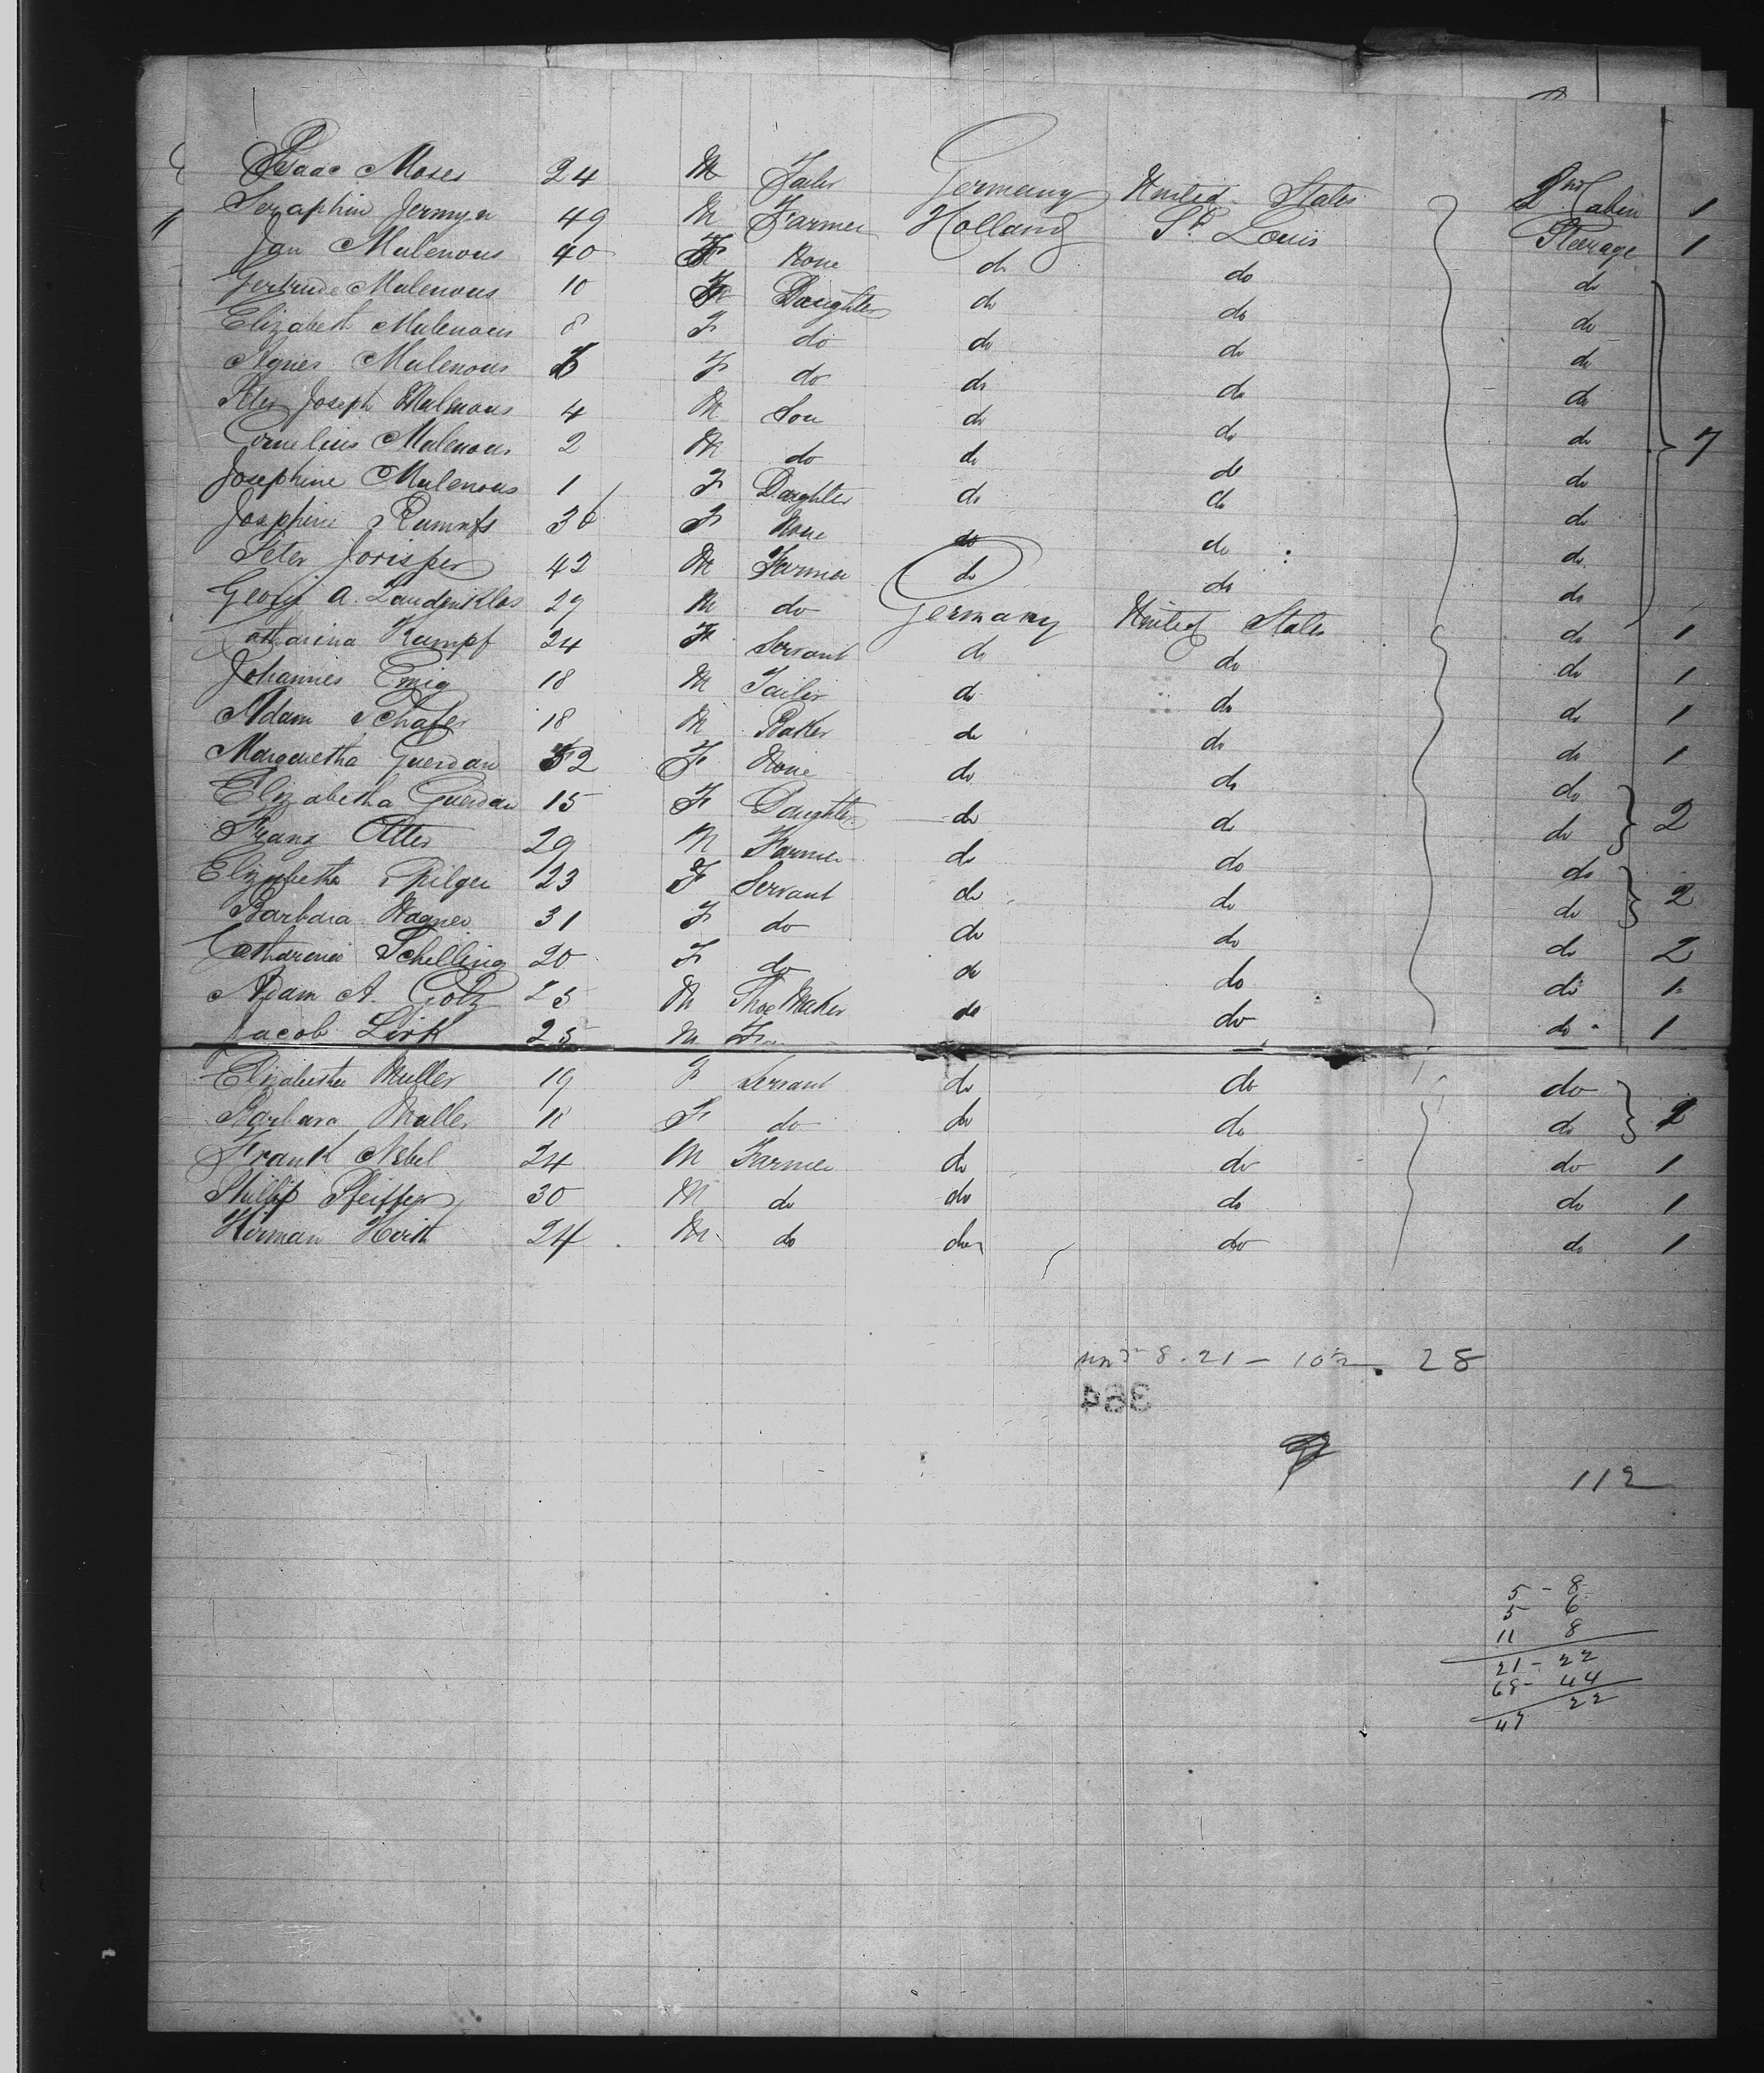 Isaac Moses 24 M Germany United States 2nd Cabin 1
Seraphin Jermyn 49 M Farmer Holland St. Louis Steerage 1
Jan Mulenous 40 F None do do do
Gertrude Mulenous 10 F Daughter do do do
Elizabeth Mulenous 8 F do do do do
Agnes Mulenous F do do do do
Peter Joseph Mulenous 4 M Son do do do 7
Cornelius Mulenous 2 M do do do do
Josephine Mulenous 1 F Daughter do do do
Josephine 36 F None do do do
Peter Jorisper 42 M Farmer do do do
Georg A. Laudenklos 29 M do Germany United States do 1
Catharina Kumpf 24 F Servant do do do 1
Johannes Emig 18 M Tailor do do do 1
Adam Schafer 18 M Baker do do do 1
Margaretha Guerdan 52 F None do do do
Elizabetha Guerdan 15 F Daughter do do do 2
Franz Otter 29 M Farmer do do do
Elizabetha Pilger 23 F Servant do do do 2
Barbara Wagner 31 F do do do do
Catharina Schelling 20 F do do do do 2
Adam A. Gotz 25 M Shoe Maker do do do 1
Jacob Link 25 M do 1
Elizabetha Muller 19 F Servant do do do
Barbara Muller 18 F do do do do 2
Frank Nebel 24 M Farmer do do do 1
Phillip Pfeiffer 30 M do do do do 1
Herman Hirth 24 M do do do do 1
8.21 — 28
364
112
5 - 8
5 6
11 8
21 - 22
68 - 44
47 22